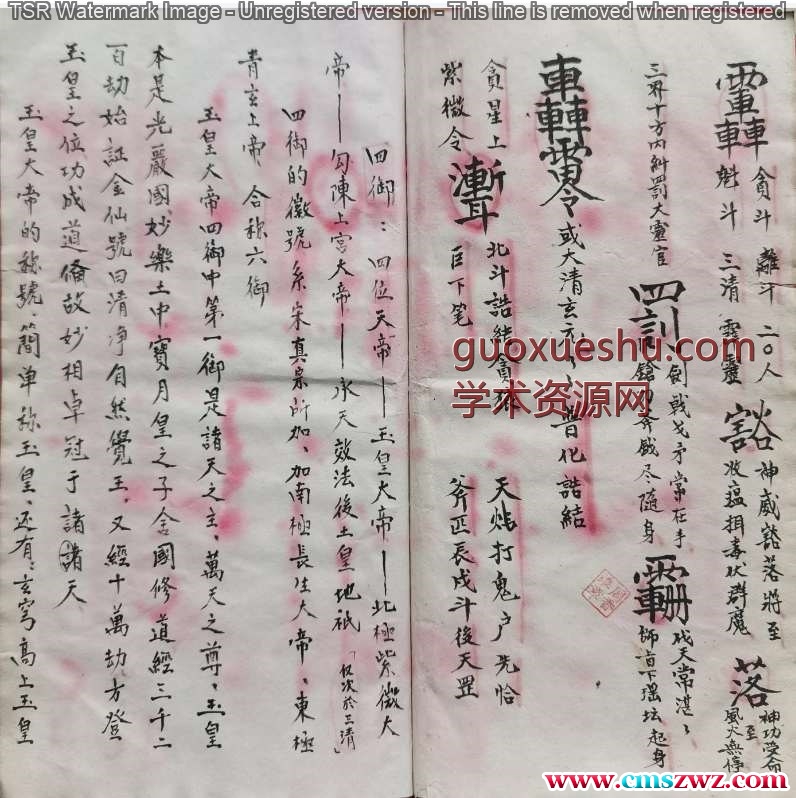 TSR Watermark Image - Unregistered version - This line is removed when registered
貪斗 離斗 二〇人
魁斗 三清 靈
豁 神威豁落將至
收瘟捐毒伏群魔
落 神功受命至
風火無停
三界十方內糾四罰大靈官
四罰 劍戟戈矛常在手
鎗 盡隨身
代天常湛
卿旨下瑤坛起身
或大清玄 普化誥結
貪星上
紫微令
北斗誥結貪
臣下笔
天 打鬼户先
斧 辰戌斗後天罡
四御：四位天帝——玉皇大帝——北極紫微大
帝——勾陳上宮大帝——承天效法後土皇地祇「仅次於三清」
四御的徽號系宋真宗所加、加南極長生大帝、東極
青玄上帝 合称六御
玉皇大帝四御中第一御是諸天之主、萬天之尊、玉皇
本是光嚴國妙樂土中寶月皇之子舍國修道經三千二
百劫始証金仙號曰清净自然覺王、又經十萬劫方登
玉皇之位功成道俻故妙相卓冠于諸諸天
玉皇大帝的称號、簡单称玉皇、还有：玄穹高上玉皇
guoxueshu.com
学术资源网
www.cmszwz.com